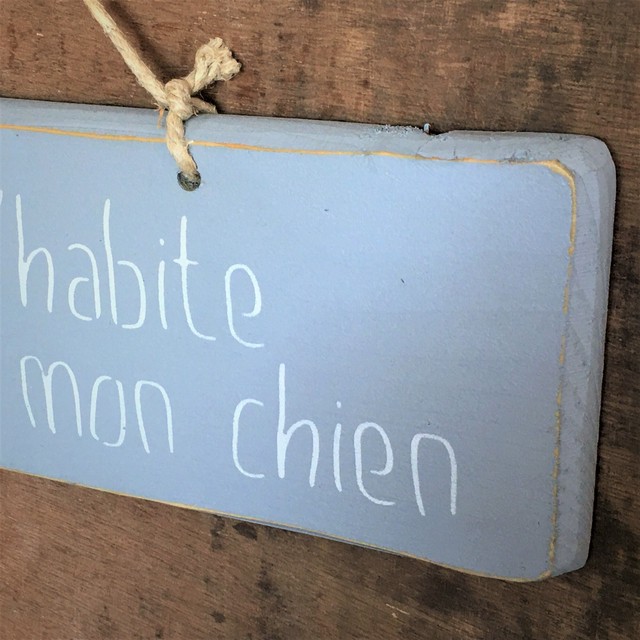 'habite
mon chien